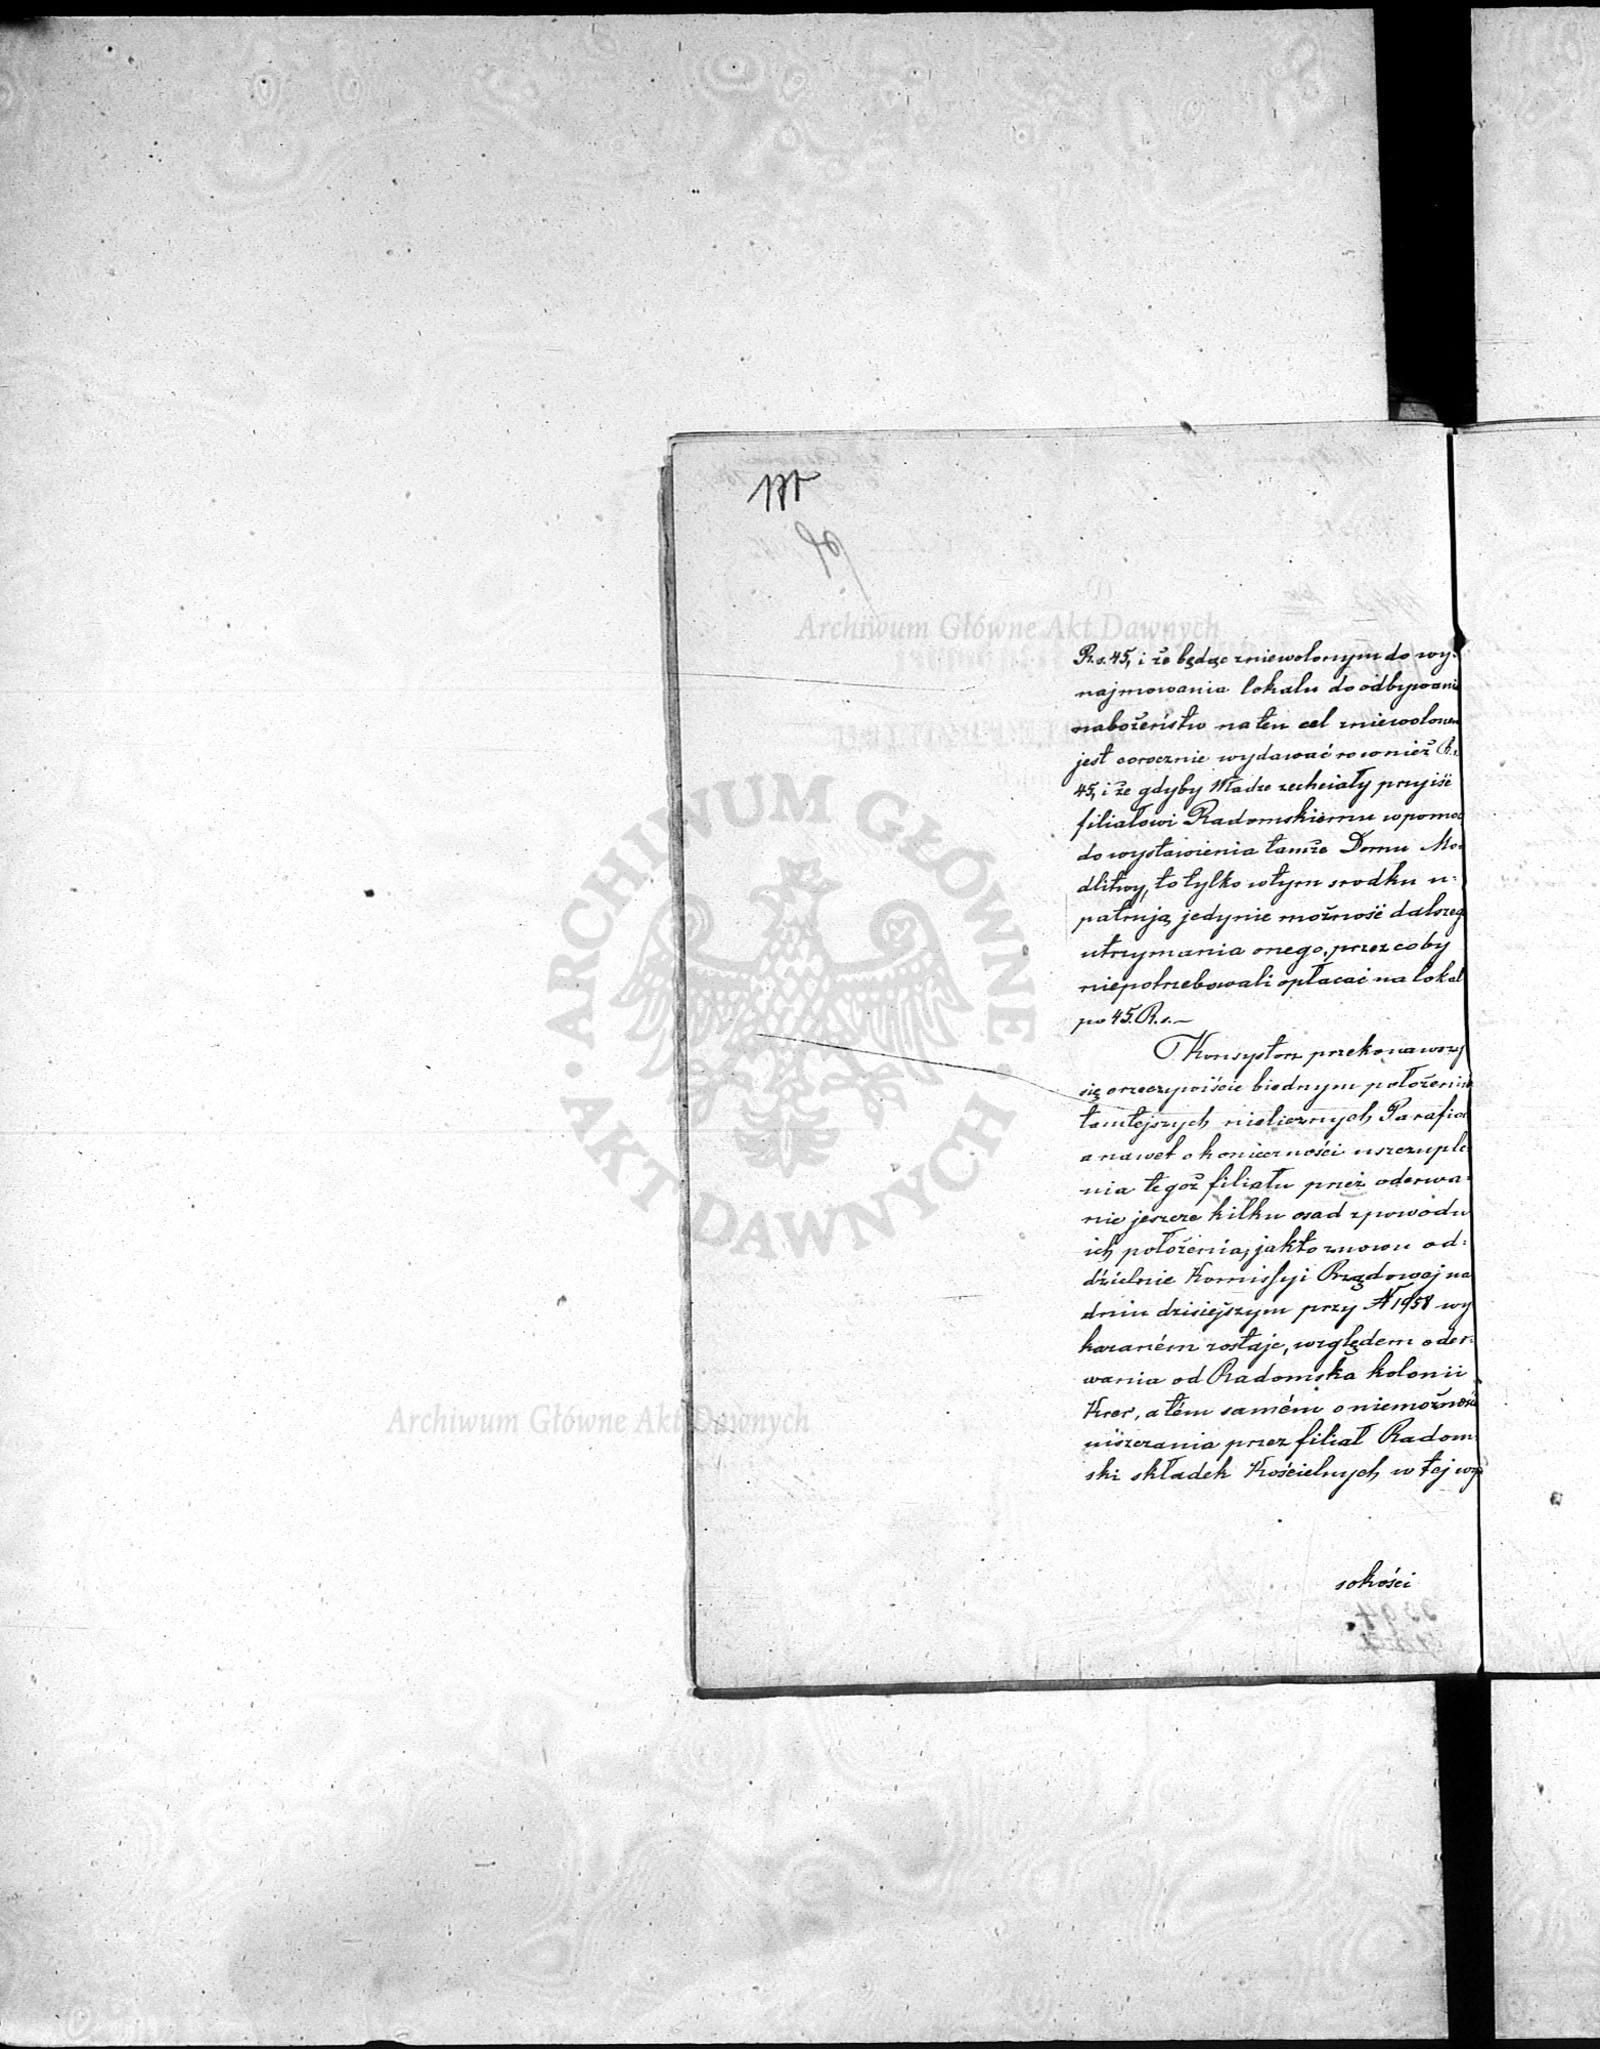 Archiwum Główne Akt Dawnych
Rs. 45, i że będąc zniewolonym do wy-
najmowania lokalu do odbywania
nabożeństw na ten cel zniewolonem
jest corocznie wydawać rownież Rs.
45, i że gdyby Władze zechciały przyiść
filiałowi Radomskiemu w pomoc
do wystawienia tamże Domu Mo-
dlitwy, to tylko w tym srodku u-
patrują jedynie możność dalszego
utrzymania onego, przez co by
niepotrzebowali opłacać na lokal
po 45. R.s.—
Konsystorz przekonawszy
się orzeczywiście biednym położeniu
tamtejszych nielicznych Parafian
a nawet o konieczności uszczuple-
nia tegoż filiału przez oderwa-
nie jeszcze kilku osad z powodu
ich położenia, jak to znowu od-
dzielnie Komissyi Rządowej na
dniu dzisiejszym przy N 1958 wy
kazaném zostaje, względem oder-
wania od Radomska kolonii
Krer, a tém samém o niemożności
uiszczania przez filiał Radom-
ski składek Kościelnych w tej wy
sokości
ARCHIWUM GŁÓWNE
· AKT DAWNYCH ·
Archiwum Główne Akt Dawnych